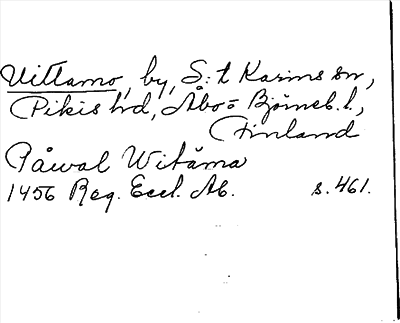 Vittamo, by, S:t Karins sn,
Pikis hrd, Åbo= Björneb. l.,
Finland
Påwal Witåma
1456 Reg. Eccl. Ab. s. 461.